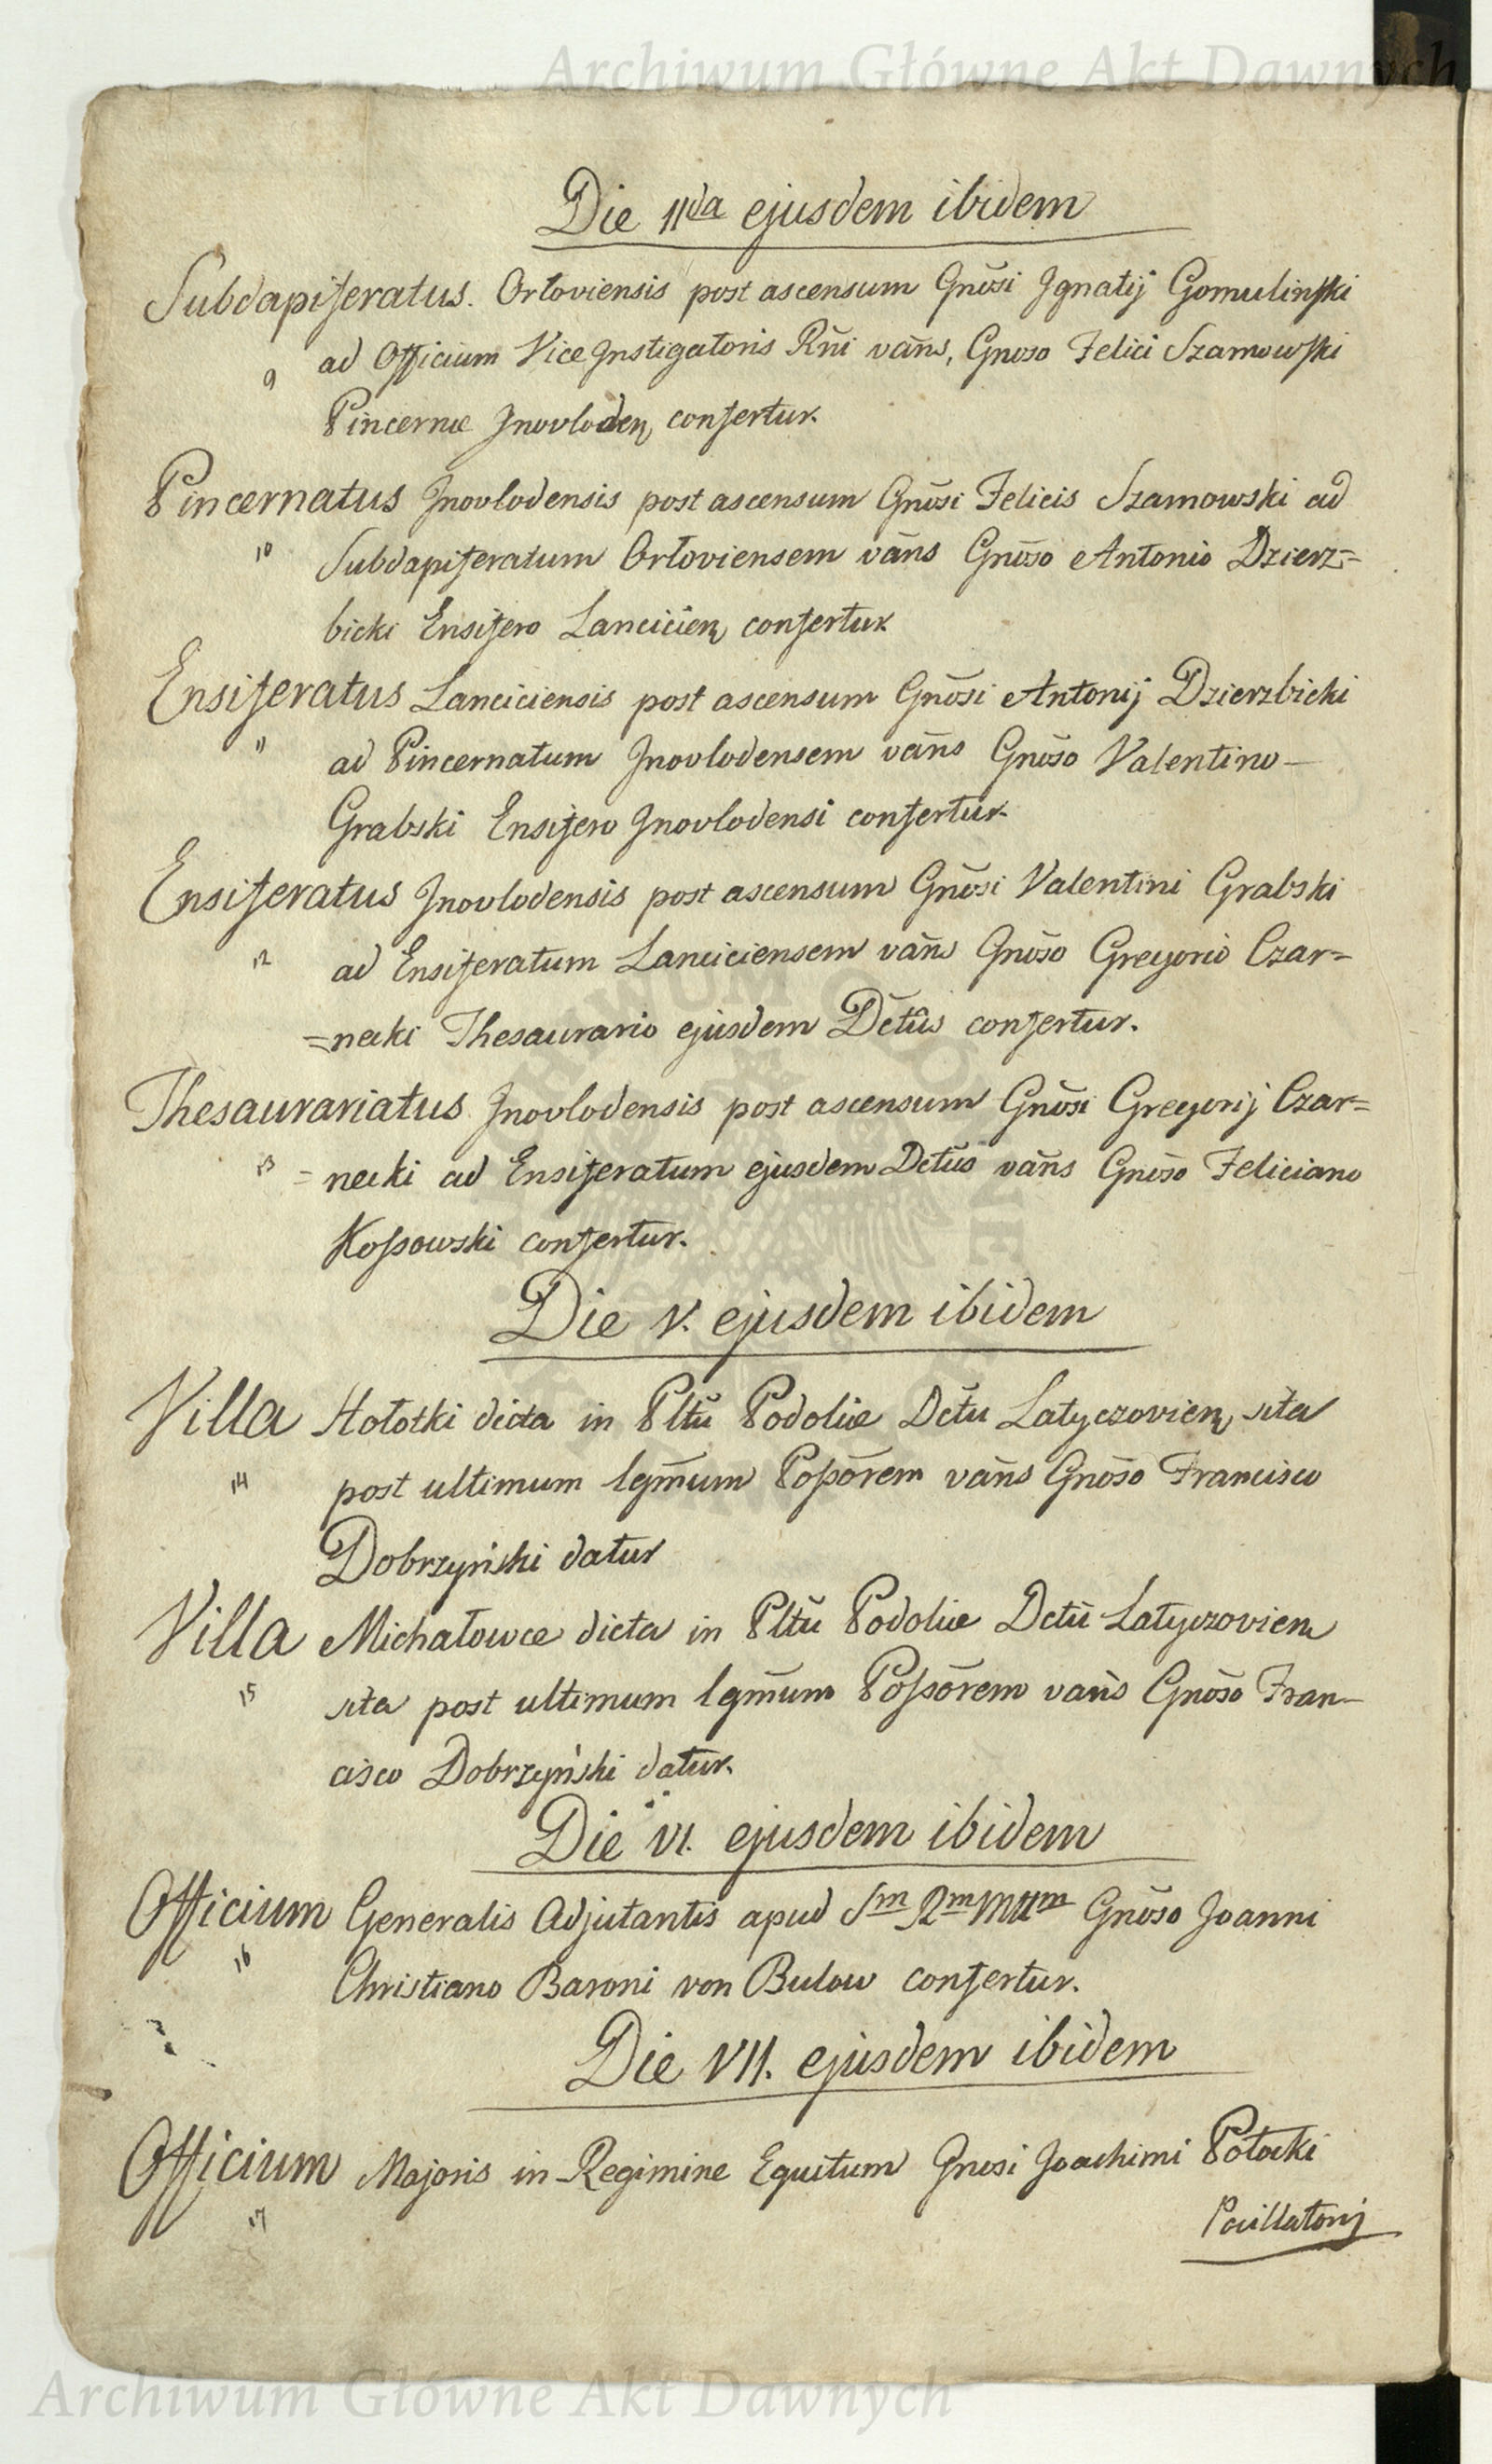 Archiwum Główne Akt Dawnych
Die IIda ejusdem ibidem
Subdapiferatus. Orłoviensis post ascensum Gnōsi Ignatij Gomulinski
9 ad Officium Vice Instigatoris Rñi vāns, Gnoso Felici Szamowski
Pincernæ Inovloden, confertur.
Pincernatus Inovlodensis post ascensum Gnōsi Felicis Szamowski ad
10 Subdapiferatum Orłoviensem vāns Gnōso Antonio Dzierz=
bicki Ensifero Lancicien, confertur
Ensiferatus Lanciciensis post ascensum Gnōsi Antonij Dzierzbicki
11 ad Pincernatum Inovlodensem vāns Gnōso Valentino
Grabski Ensifero Inovlodensi confertur.
Ensiferatus Inovlodensis post ascensum Gnōsi Valentini Grabski
12 ad Ensiferatum Lanciciensem vāns Gnōso Gregorio Czar=
=necki Thesaurario ejusdem Dctūs confertur.
Thesaurariatus Inovlodensis post ascensum Gnōsi Gregorij Czar=
13 =necki ad Ensiferatum ejusdem Dctūs vāns Gnōso Feliciano
Kossowski confertur.
Die V. ejusdem ibidem
Villa Hołotki dicta in Pltū Podoliæ Dctū Latyczovien, sita
14 post ultimum lgm̄um Possōrem vāns Gnōso Francisco
Dobrzyński datur
Villa Michałowce dicta in Pltū Podoliæ Dctū Latyczovien
15 sita post ultimum lgm̄um Possōrem vāns Gnōso Fran–
cisco Dobrzyński datur.
Die VI. ejusdem ibidem
Officium Generalis Adjutantis apud Sm Rm Mttm Gnōso Joanni
16 Christiano Baroni von Bulow confertur.
Die VII. ejusdem ibidem
Officium Majoris in Regimine Equitum Gnosi Joachimi Potocki
17
Pocillatorij
Archiwum Główne Akt Dawnych